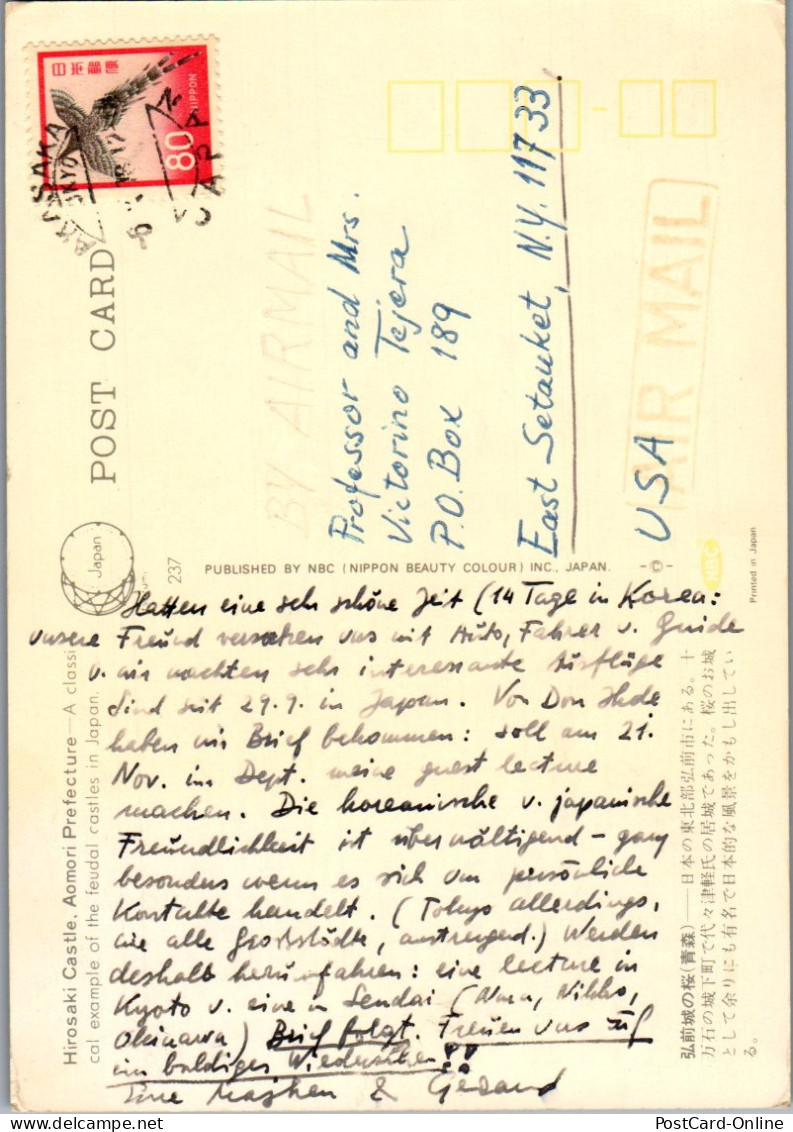 日本郵便
NIPPON
80
AKASAKA
TOKYO
JAPAN
POST CARD
BY AIRMAIL
AIR MAIL
Professor and Mrs.
Victorino Tejera
P.O. Box 189
East Setauket, N.Y. 11733
USA
Japan
237
PUBLISHED BY NBC (NIPPON BEAUTY COLOUR) INC., JAPAN.
NBC
Printed in Japan
Hirosaki Castle, Aomori Prefecture—A classi
cal example of the feudal castles in Japan.
Hatten eine sehr schöne Zeit (14 Tage in Korea:
unsere Freund versahen uns mit Auto, Fahrer u. Guide
u. wir machten sehr interessante Ausflüge
Sind seit 29.9. in Japan. Von Don Ihde
haben wir Brief bekommen: soll am 21.
Nov. im Dept. meine guest lecture
machen. Die koreanische u. japanische
Freundlichkeit ist überwältigend – ganz
besonders wenn es sich um persönliche
Kontakte handelt. (Tokyo allerdings,
wie alle Großstädte, anstrengend.) Werden
deshalb herumfahren: eine lecture in
Kyoto u. eine in Sendai (Nara, Nikko,
Okinawa) Brief folgt. Freuen uns auf
ein baldiges Wiedersehen!!
Eure & Gerard
弘前城の桜(青森)——日本の東北部弘前市にある。十
万石の城下町で代々津軽氏の居城であった。桜のお城
として余りにも有名で日本的な風景をかもし出してい
る。
PostCard-Online